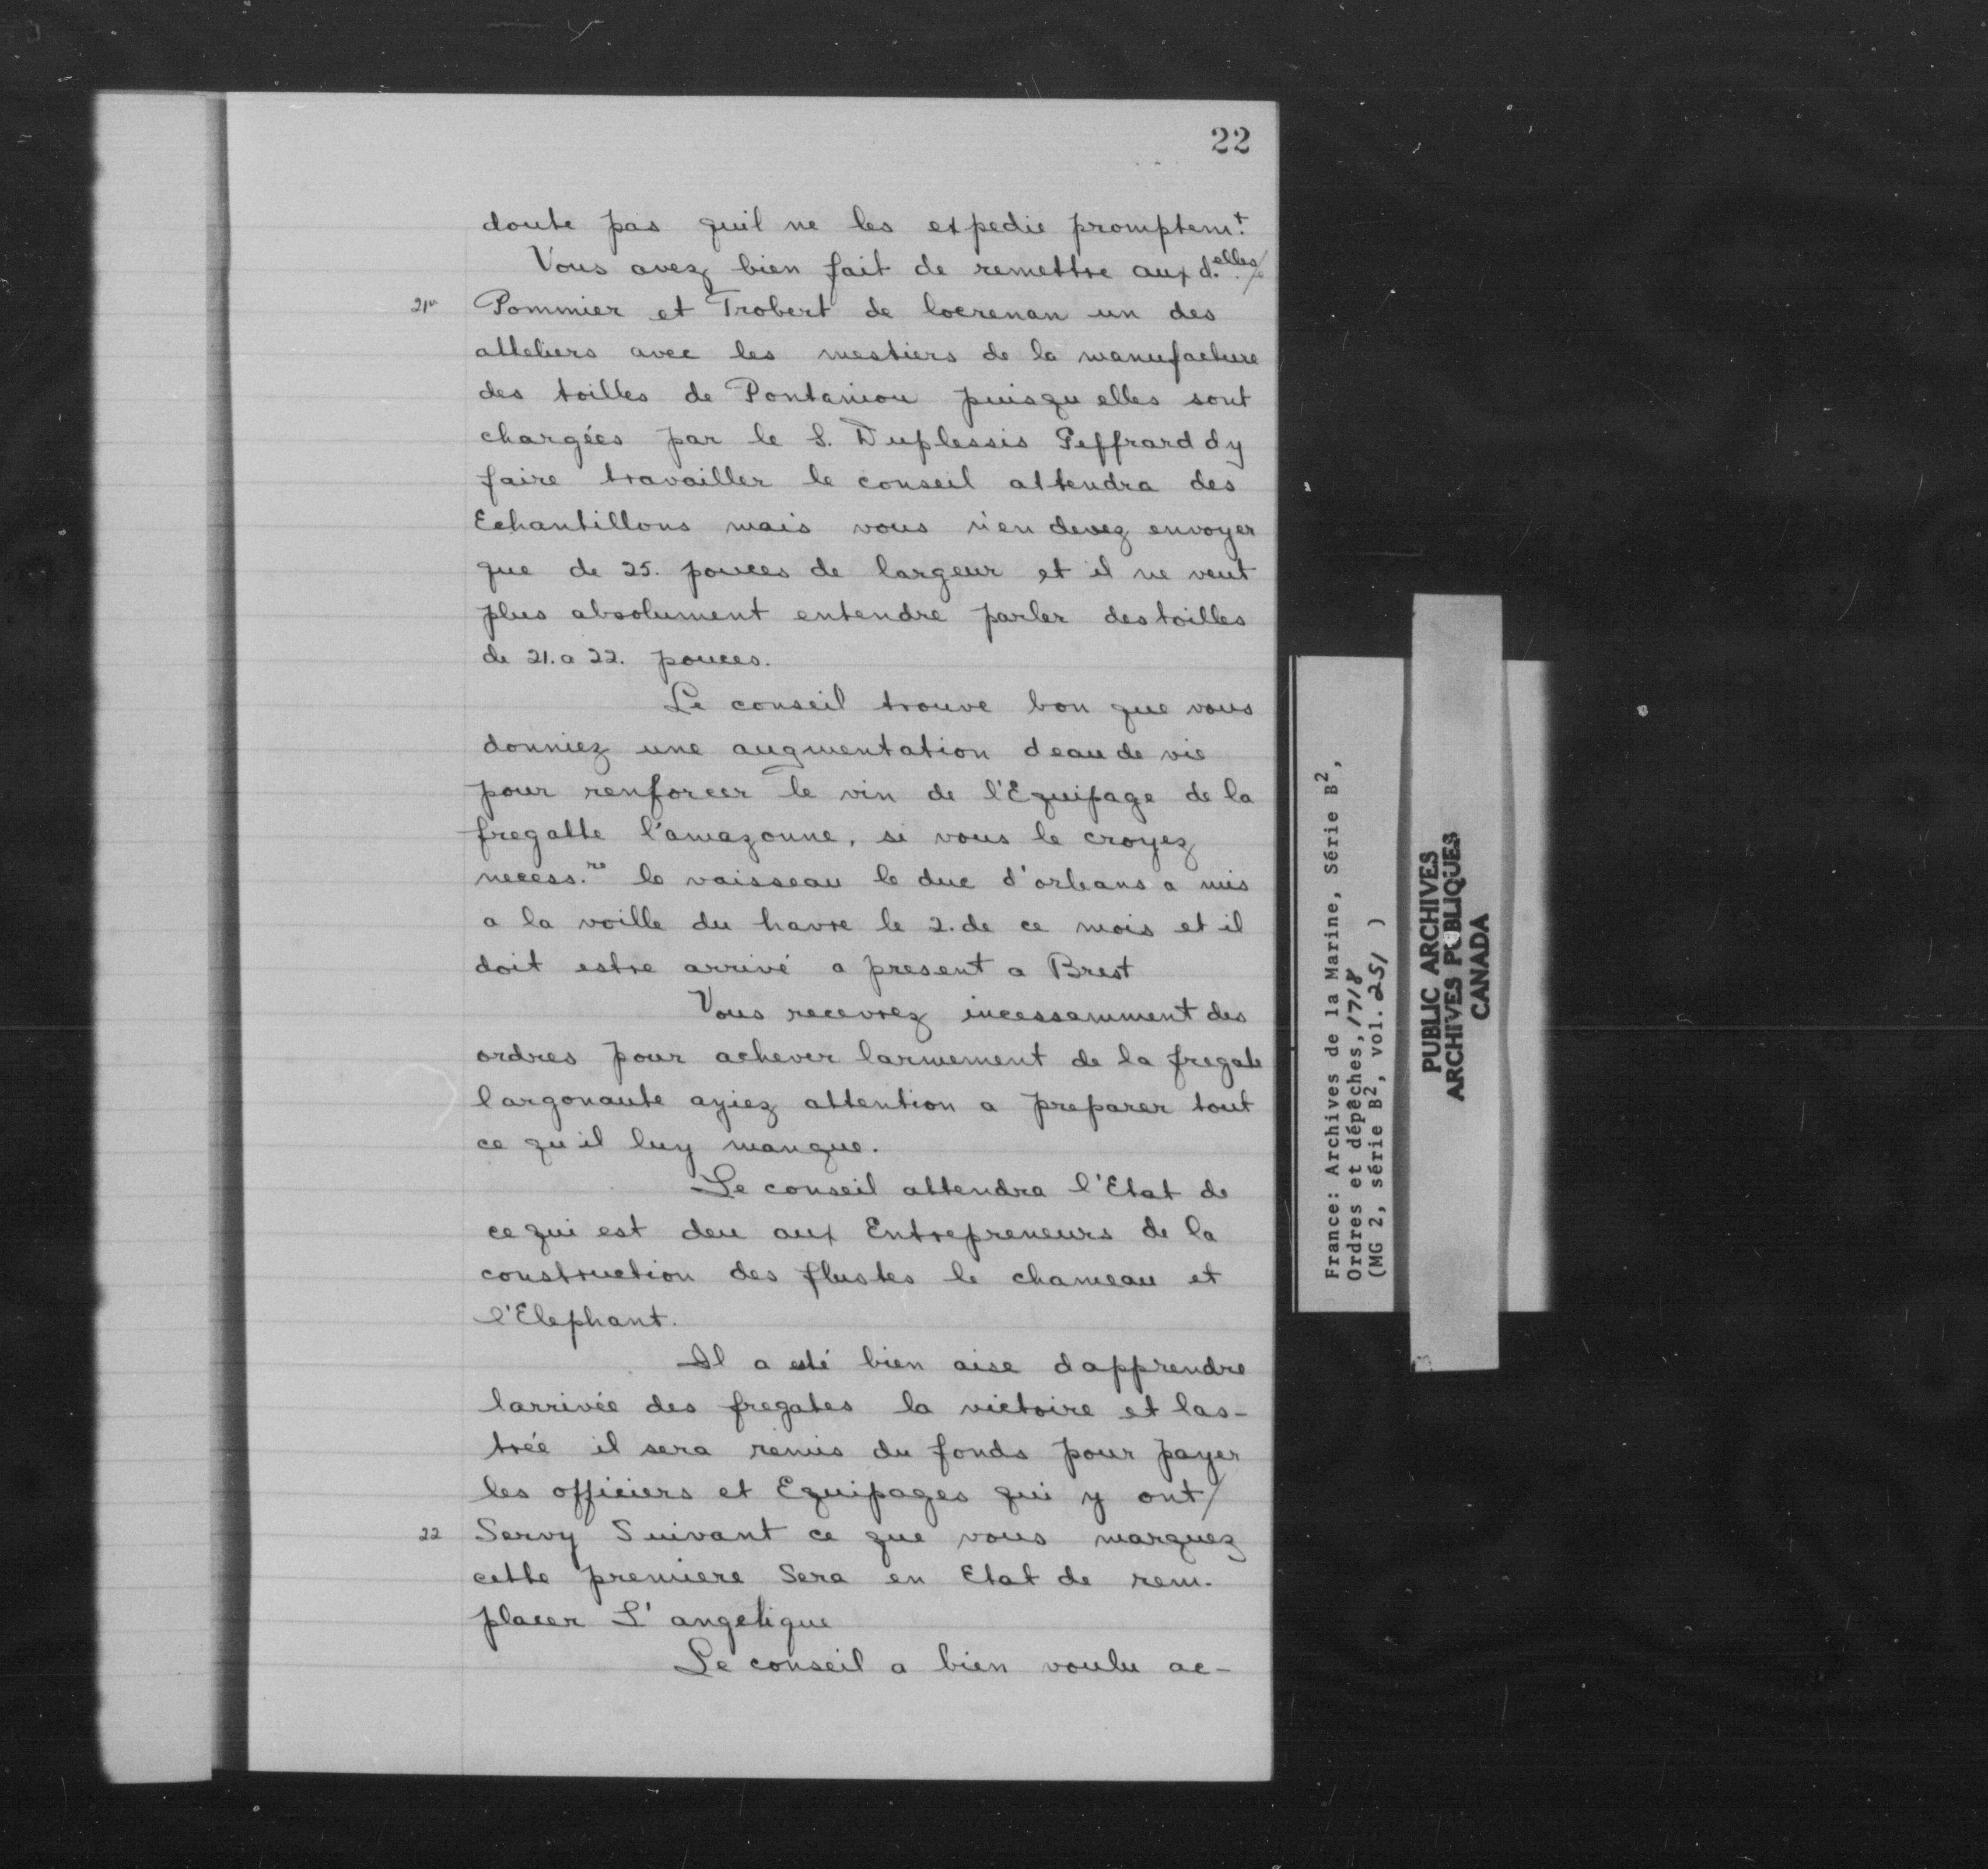 22
doute pas quil ne les expedie promptem.t
Vous avez bien fait de remettre aux d.elles/
21v Pommier et Trobert de locrenan un des
atteliers avec les mestiers de la manufacture
des toilles de Pontaniou puisqu elles sont
chargées par le S. Duplessis Peffrard dy
faire travailler le conseil attendra des
Echantillons mais vous n'en devez envoyer
que de 25. pouces de largeur et il ne veut
plus absolument entendre parler des toilles
de 21. a 22. pouces.
Le conseil trouve bon que vous
donniez une augmentation deau de vie
pour renforcer le vin de l'Equipage de la
fregatte l'amazonne, si vous le croyez
necess.re le vaisseau le duc d'orleans a mis
a la voille du havre le 2. de ce mois et il
doit estre arrivé a present a Brest
Vous recevrez incessamment des
ordres pour achever larmement de la fregate
largonaute ayiez attention a preparer tout
ce qu il luy manque.
Le conseil attendra l'Etat de
ce qui est deu aux Entrepreneurs de la
construction des flustes le chameau et
l'Elephant.
Il a esté bien aise dapprendre
larrivée des fregates la victoire et las-
trée il sera remis du fonds pour payer
les officiers et Equipages qui y ont/
22 Servy Suivant ce que vous marquez
cette premiere Sera en Etat de rem-
placer L'angelique
Le conseil a bien voulu ac-
France: Archives de la Marine, Série B2,
Ordres et dépêches, 1718
(MG 2, série B2, vol. 251 )
PUBLIC ARCHIVES
ARCHIVES PUBLIQUES
CANADA